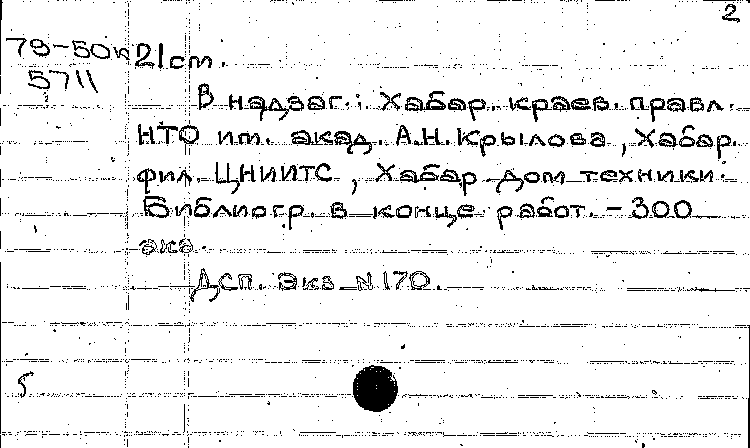 2
79-50к 21см.
5711
В надзаг.: Хабар. краев. правл.
НТО им. акад. А.Н.Крылова, Хабар.
фил. ЦНИИТС, Хабар. дом техники.
Библиогр. в конце работ. - 300
экз.
Дсп. Экз. N 170.